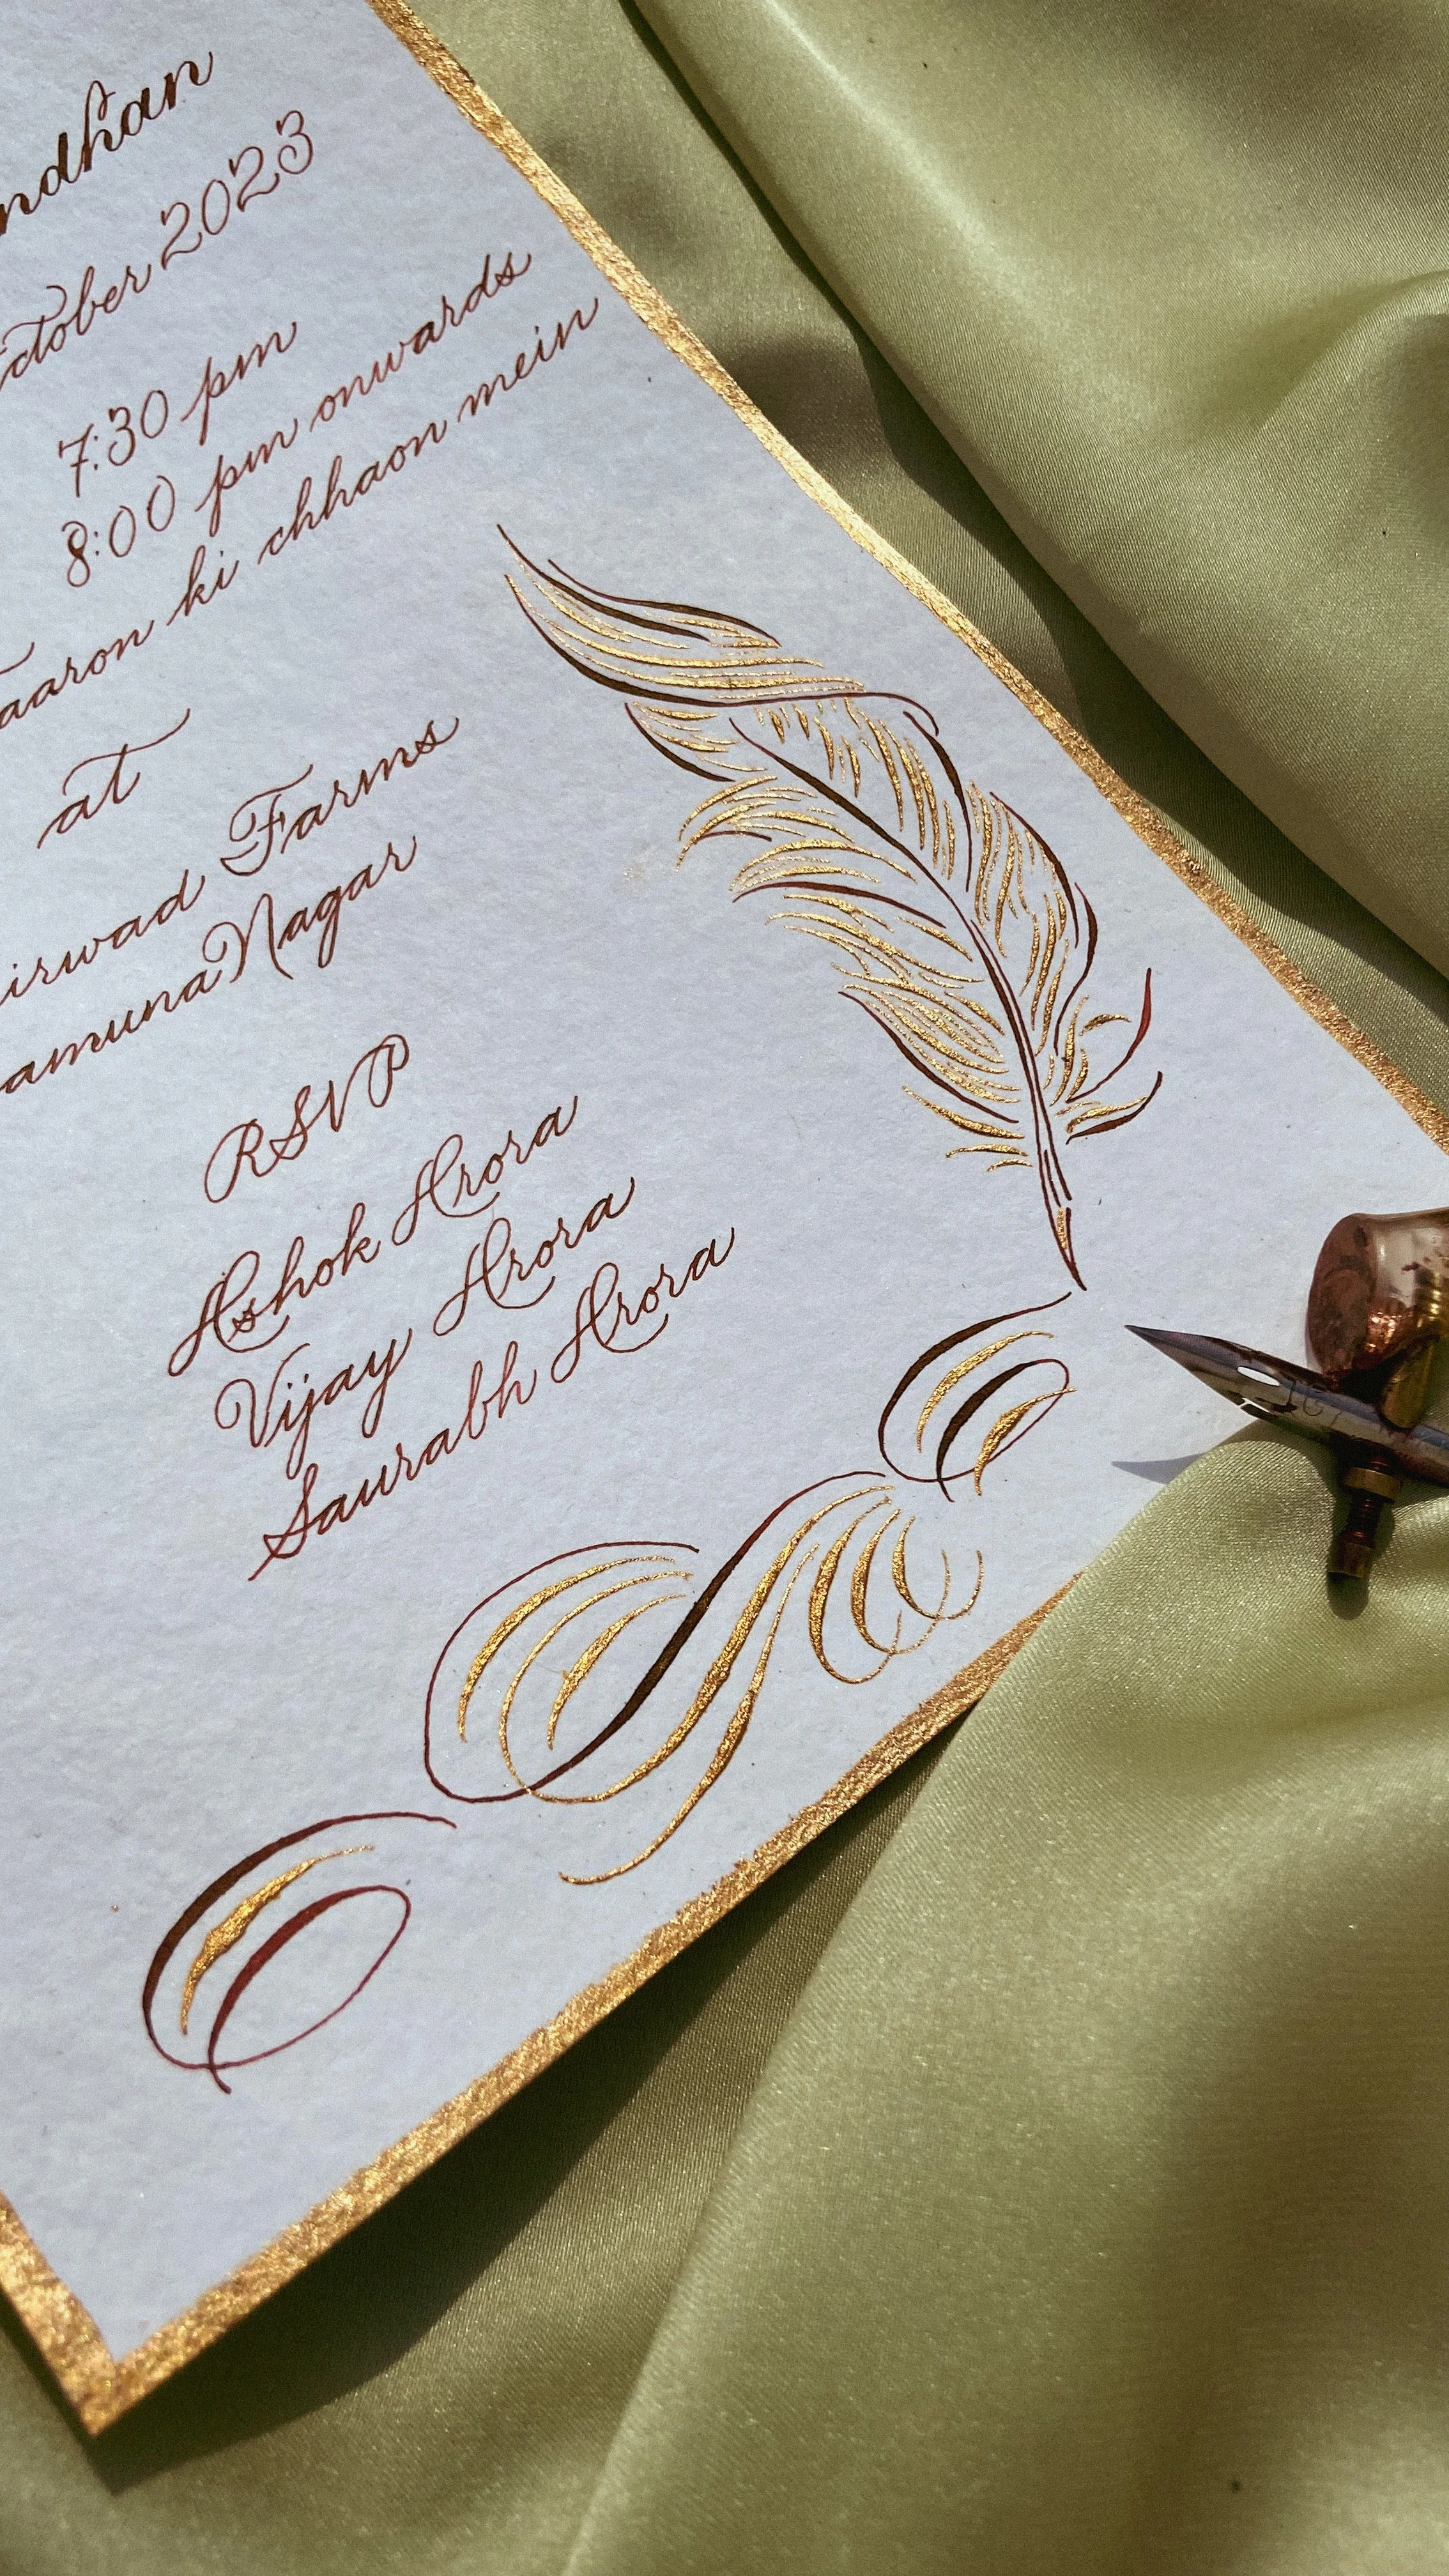 ndhan
ctober 2023
7:30 pm
8:00 pm onwards
aaron ki chhaon mein
at
irwad Farms
amuna Nagar
RSVP
Ashok Arora
Vijay Arora
Saurabh Arora